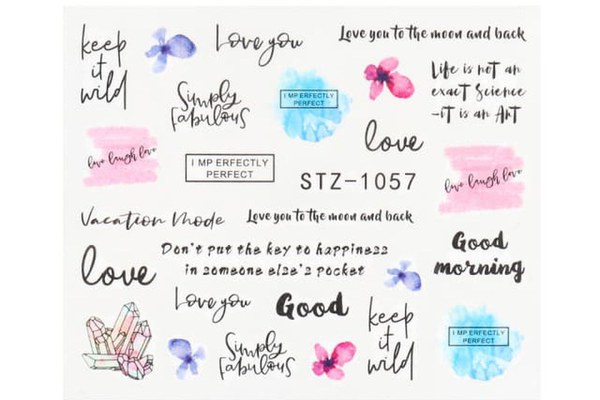 keep
it
wild
Love you
Love you to the moon and back
Simply
Fabulous
I MP ERFECTLY
PERFECT
Life is not an
exact Science
-it is an Art
love
love laugh love
I MP ERFECTLY
PERFECT
STZ-1057
love laugh love
Vacation Mode
Love you to the moon and back
Good
morning
love
Don't put the key to happiness
in someone else's pocket
Love you
Good
keep
it
wild
Simply
Fabulous
I MP ERFECTLY
PERFECT